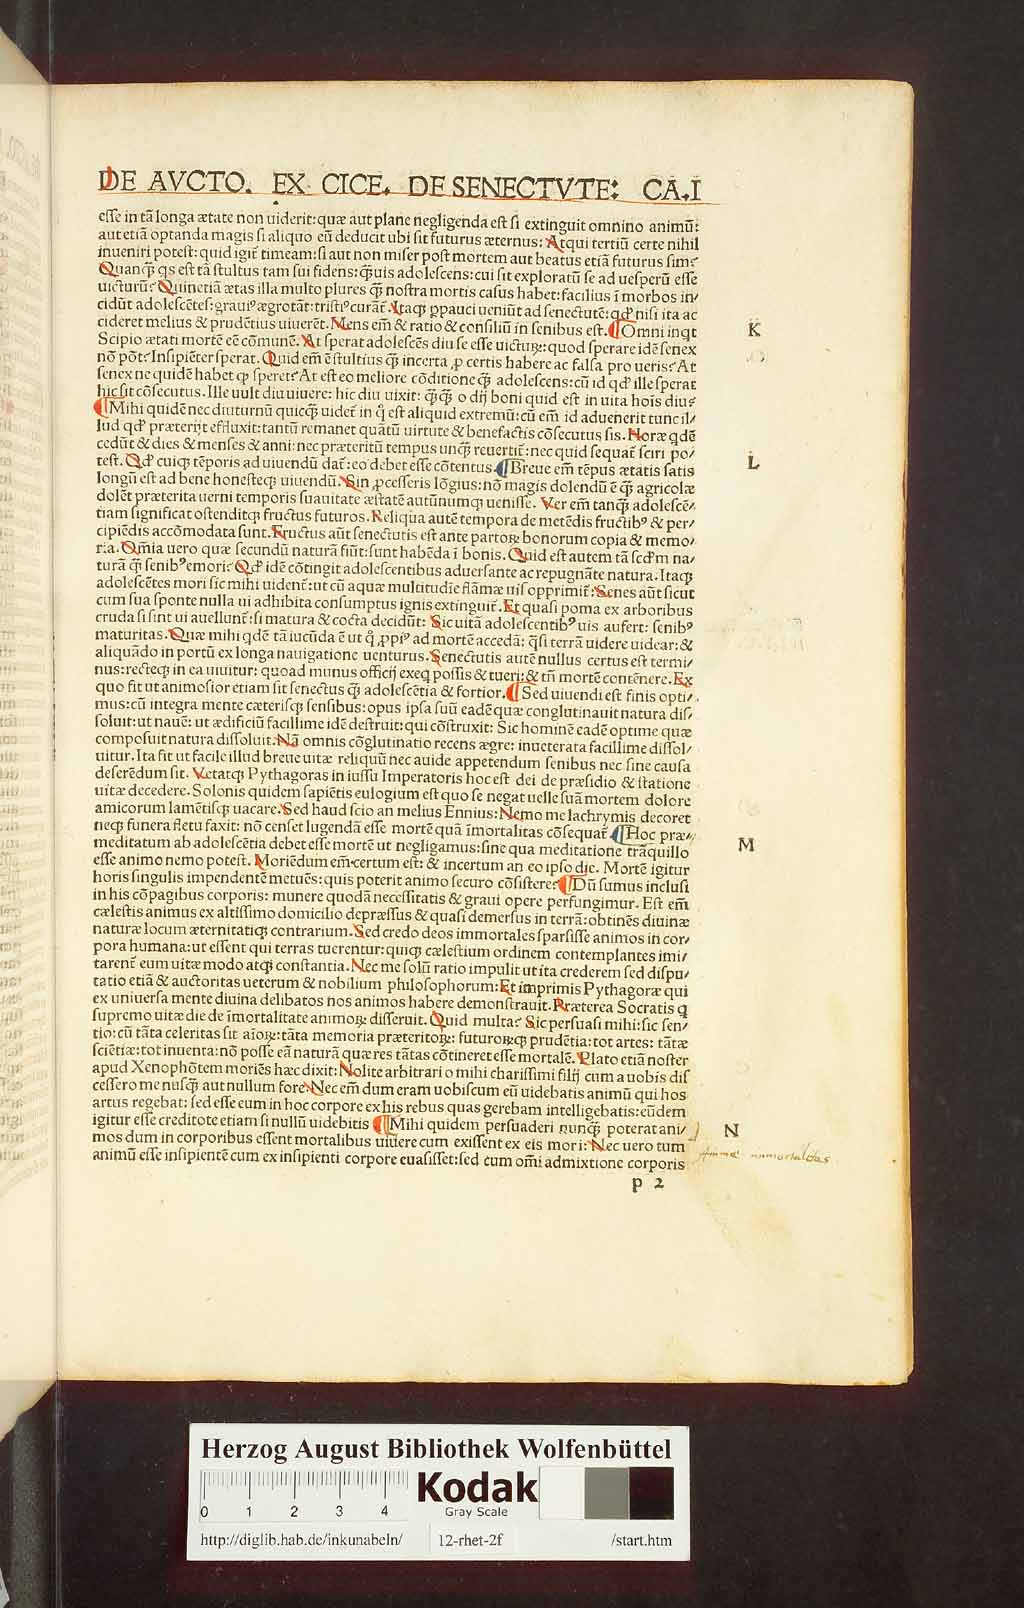 DE AVCTO. EX CICE. DE SENECTVTE: CA.I
esse in tā longa ætate non uiderit: quæ aut plane negligenda est si extinguit omnino animū:
aut etiā optanda magis si aliquo eū deducit ubi sit futurus æternus: Atqui tertiū certe nihil
inueniri potest: quid igiť timeam: si aut non miser post mortem aut beatus etiā futurus sim?
Quanq̄ qs est tā stultus tam sui fidens: q̄uis adolescens: cui sit exploratū se ad uesperū esse
uicturū? Quinetiā ætas illa multo plures q̄ nostra mortis casus habet: facilius ī morbos in/
cidūt adolescētes: grauiꝰ ægrotāt: tristiꝰ curāť. Itaqꝫ ppauci ueniūt ad senectutē: qđ nisi ita ac
cideret melius & prudētius uiuereť. Mens em̄ & ratio & consiliū in senibus est. ¶ Omni inqt
Scipio ætati mortē eē cōmunē. At sperat adolescēs diu se esse uictuꝝ: quod sperare idē senex
nō pōt? Insipiēter sperat. Quid em̄ ē stultius q̄ incerta ꝓ certis habere ac falsa pro ueris? At
senex ne quidē habet qꝫ speret? At est eo meliore cōditione q̄ adolescens: cū id qđ ille sperat
hic sit cōsecutus. Ille uult diu uiuere: hic diu uixit: q̄q̄ o dij boni quid est in uita hoīs diu?
¶ Mihi quidē nec diuturnū quicq̄ uideť in q̊ est aliquid extremū: cū em̄ id aduenerit tunc il/
lud qđ præterijt effluxit: tantū remanet quātū uirtute & benefactis cōsecutus sis. Horæ qdē
cedūt & dies & menses & anni: nec præteritū tempus unq̄ reuertiť: nec quid sequať sciri po/
test. Qđ cuiqꝫ tēporis ad uiuendū dať: eo debet esse cōtentus. ¶ Breue em̄ tēpus ætatis satis
longū est ad bene honesteqꝫ uiuendū. Sin ꝓcesseris lōgius: nō magis dolendū ē q̄ agricolæ
dolēt præterita uerni temporis suauitate æstatē autūnumqꝫ uenisse. Ver em̄ tanq̄ adolescē/
tiam significat ostenditqꝫ fructus futuros. Reliqua autē tempora de metēdis fructibꝰ & per/
cipiēdis accōmodata sunt. Fructus aūt senectutis est ante partoꝝ bonorum copia & memo/
ria. Om̄ia uero quæ secundū naturā fiūt: sunt habēda ī bonis. Quid est autem tā scđm na/
turā q̄ senibꝰ emori? Qđ idē cōtingit adolescentibus aduersante ac repugnāte natura. Itaqꝫ
adolescētes mori sic mihi uidenť: ut cū aquæ multitudīe flāmæ uis opprimiť: Senes aūt sicut
cum sua sponte nulla ui adhibita consumptus ignis extinguiť. Et quasi poma ex arboribus
cruda si sint ui auellunť: si matura & cocta decidūt: Sic uitā adolescentibꝰ uis aufert: senibꝰ
maturitas. Quæ mihi qdē tā iucūda ē ut q̊ ꝓpiꝰ ad mortē accedā: q̄si terrā uidere uidear: &
aliquādo in portū ex longa nauigatione uenturus. Senectutis autē nullus certus est termi/
nus: recteqꝫ in ea uiuitur: quoad munus officij exeq possis & tueri: & tn̄ mortē contēnere. Ex
quo fit ut animosior etiam sit senectus q̄ adolescētia & fortior. ¶ Sed uiuendi est finis opti/
mus: cū integra mente cæterisqꝫ sensibus: opus ipsa suū eadē quæ conglutinauit natura dis/
soluit: ut nauē: ut ædificiū facillime idē destruit: qui cōstruxit: Sic hominē eadē optime quæ
composuit natura dissoluit. Nā omnis cōglutinatio recens ægre: inueterata facillime dissol/
uitur. Ita fit ut facile illud breue uitæ reliquū nec auide appetendum senibus nec sine causa
deserēdum sit. Vetatqꝫ Pythagoras in iussu Imperatoris hoc est dei de præsidio & statione
uitæ decedere. Solonis quidem sapiētis eulogium est quo se negat uelle suā mortem dolore
amicorum lamētisqꝫ uacare. Sed haud scio an melius Ennius: Nemo me lachrymis decoret
neqꝫ funera fletu faxit: nō censet lugendā esse mortē quā īmortalitas cōsequať. ¶ Hoc præ/
meditatum ab adolescētia debet esse mortē ut negligamus: sine qua meditatione trāquillo
esse animo nemo potest. Moriēdum em̄ certum est: & incertum an eo ipso die. Mortē igitur
horis singulis impendentē metuēs: quis poterit animo securo cōsistere? ¶ Dū sumus inclusi
in his cōpagibus corporis: munere quodā necessitatis & graui opere perfungimur. Est em̄
cælestis animus ex altissimo domicilio depræssus & quasi demersus in terrā: obtinēs diuinæ
naturæ locum æternitatiqꝫ contrarium. Sed credo deos immortales sparsisse animos in cor/
pora humana: ut essent qui terras tuerentur: quiqꝫ cælestium ordinem contemplantes imi/
tarenť eum uitæ modo atqꝫ constantia. Nec me solū ratio impulit ut ita crederem sed dispu/
tatio etiā & auctoritas ueterum & nobilium philosophorum: Et imprimis Pythagoræ qui
ex uniuersa mente diuina delibatos nos animos habere demonstrauit. Præterea Socratis q
supremo uitæ die de īmortalitate animoꝝ disseruit. Quid multa? Sic persuasi mihi: sic sen/
tio: cū tāta celeritas sit aīoꝝ: tāta memoria præteritoꝝ: futuroꝝqꝫ prudētia: tot artes: tātæ
sciētiæ: tot inuenta: nō posse eā naturā quæ res tātas cōtineret esse mortalē. Plato etiā noster
apud Xenophōtem moriēs hæc dixit: Nolite arbitrari o mihi charissimi filij cum a uobis dis
cessero me nusq̄ aut nullum fore. Nec em̄ dum eram uobiscum eū uidebatis animū qui hos
artus regebat: sed esse eum in hoc corpore ex his rebus quas gerebam intelligebatis: eūdem
igitur esse creditote etiam si nullū uidebitis ¶ Mihi quidem persuaderi nunq̄ poterat ani/
mos dum in corporibus essent mortalibus uiuere cum exissent ex eis mori: Nec uero tum
animū esse insipientē cum ex insipienti corpore euasisset: sed cum om̄i admixtione corporis
p 2
K
L
M
N
Animæ immortalitas
Herzog August Bibliothek Wolfenbüttel
0 1 2 3 4
Kodak
Gray Scale
http://diglib.hab.de/inkunabeln/ 12-rhet-2f /start.htm